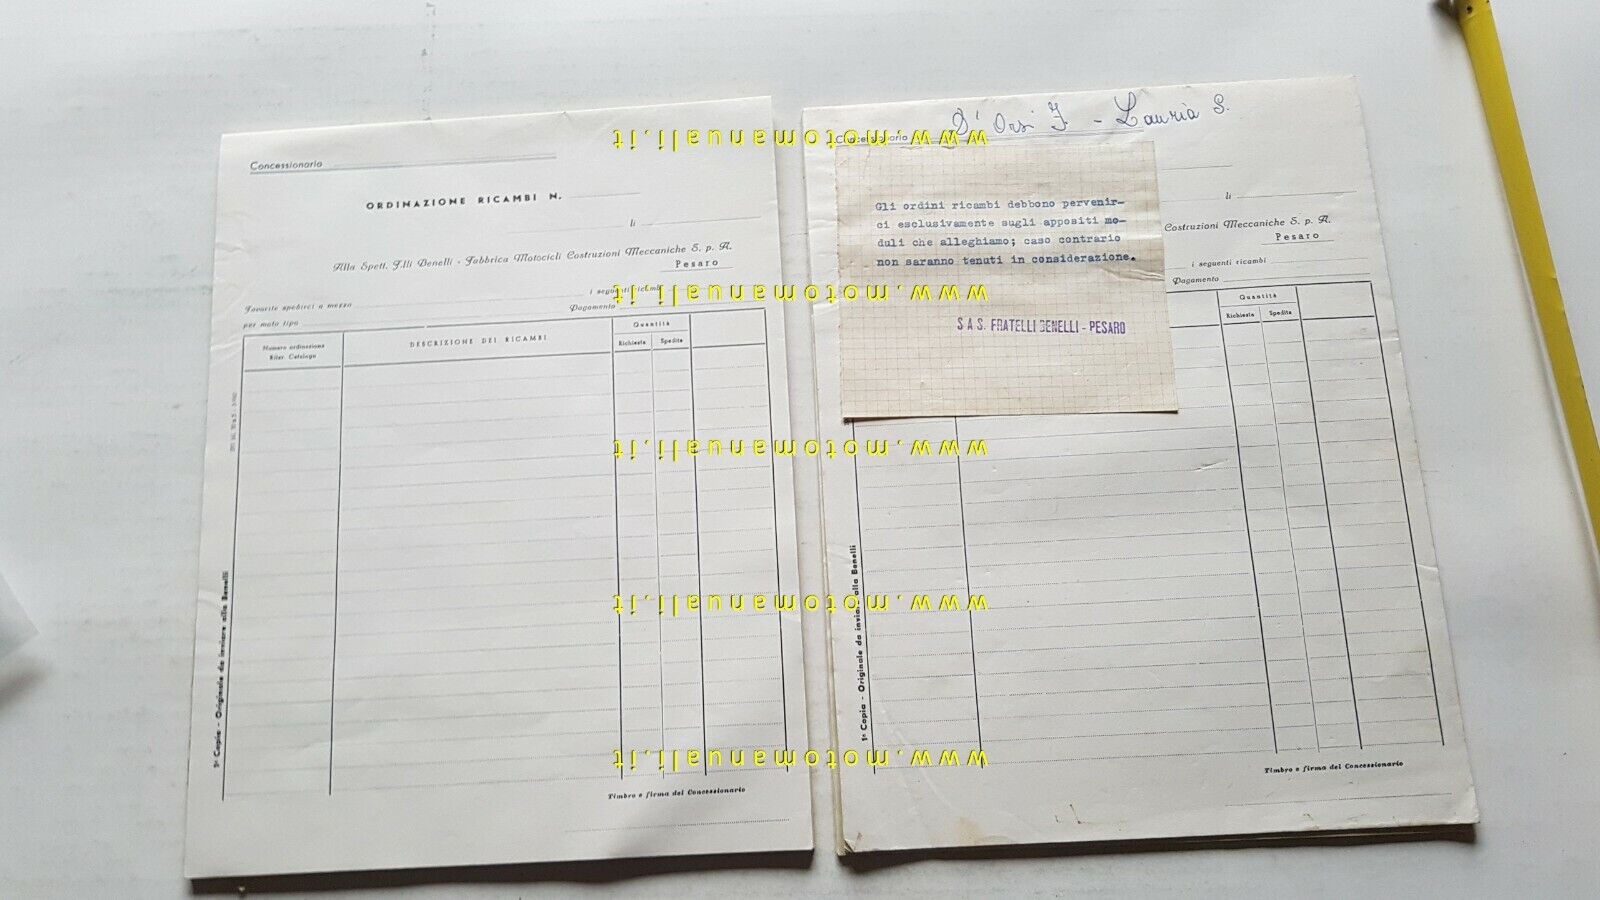 Concessionario
ORDINAZIONE RICAMBI N.
li
Alla Spett. F.lli Benelli - Fabbrica Motocicli Costruzioni Meccaniche S. p. A.
Pesaro
i seguenti ricambi
Favorite spedirci a mezzo
Pagamento
per moto tipo
Numero ordinazione
Rifer. Catalogo
DESCRIZIONE DEI RICAMBI
Quantità
Richiesta Spedita
1ª Copia - Originale da inviare alla Benelli
Timbro e firma del Concessionario
Concessionario D' Orsi F. - Lauria S.
li
Costruzioni Meccaniche S. p. A.
Pesaro
i seguenti ricambi
Pagamento
Quantità
Richiesta Spedita
Gli ordini ricambi debbono pervenir-
ci esclusivamente sugli appositi mo-
duli che alleghiamo; caso contrario
non saranno tenuti in considerazione.
S.A.S. FRATELLI BENELLI - PESARO
1ª Copia - Originale da inviare alla Benelli
Timbro e firma del Concessionario
www.motomanuali.it
www.motomanuali.it
www.motomanuali.it
www.motomanuali.it
www.motomanuali.it